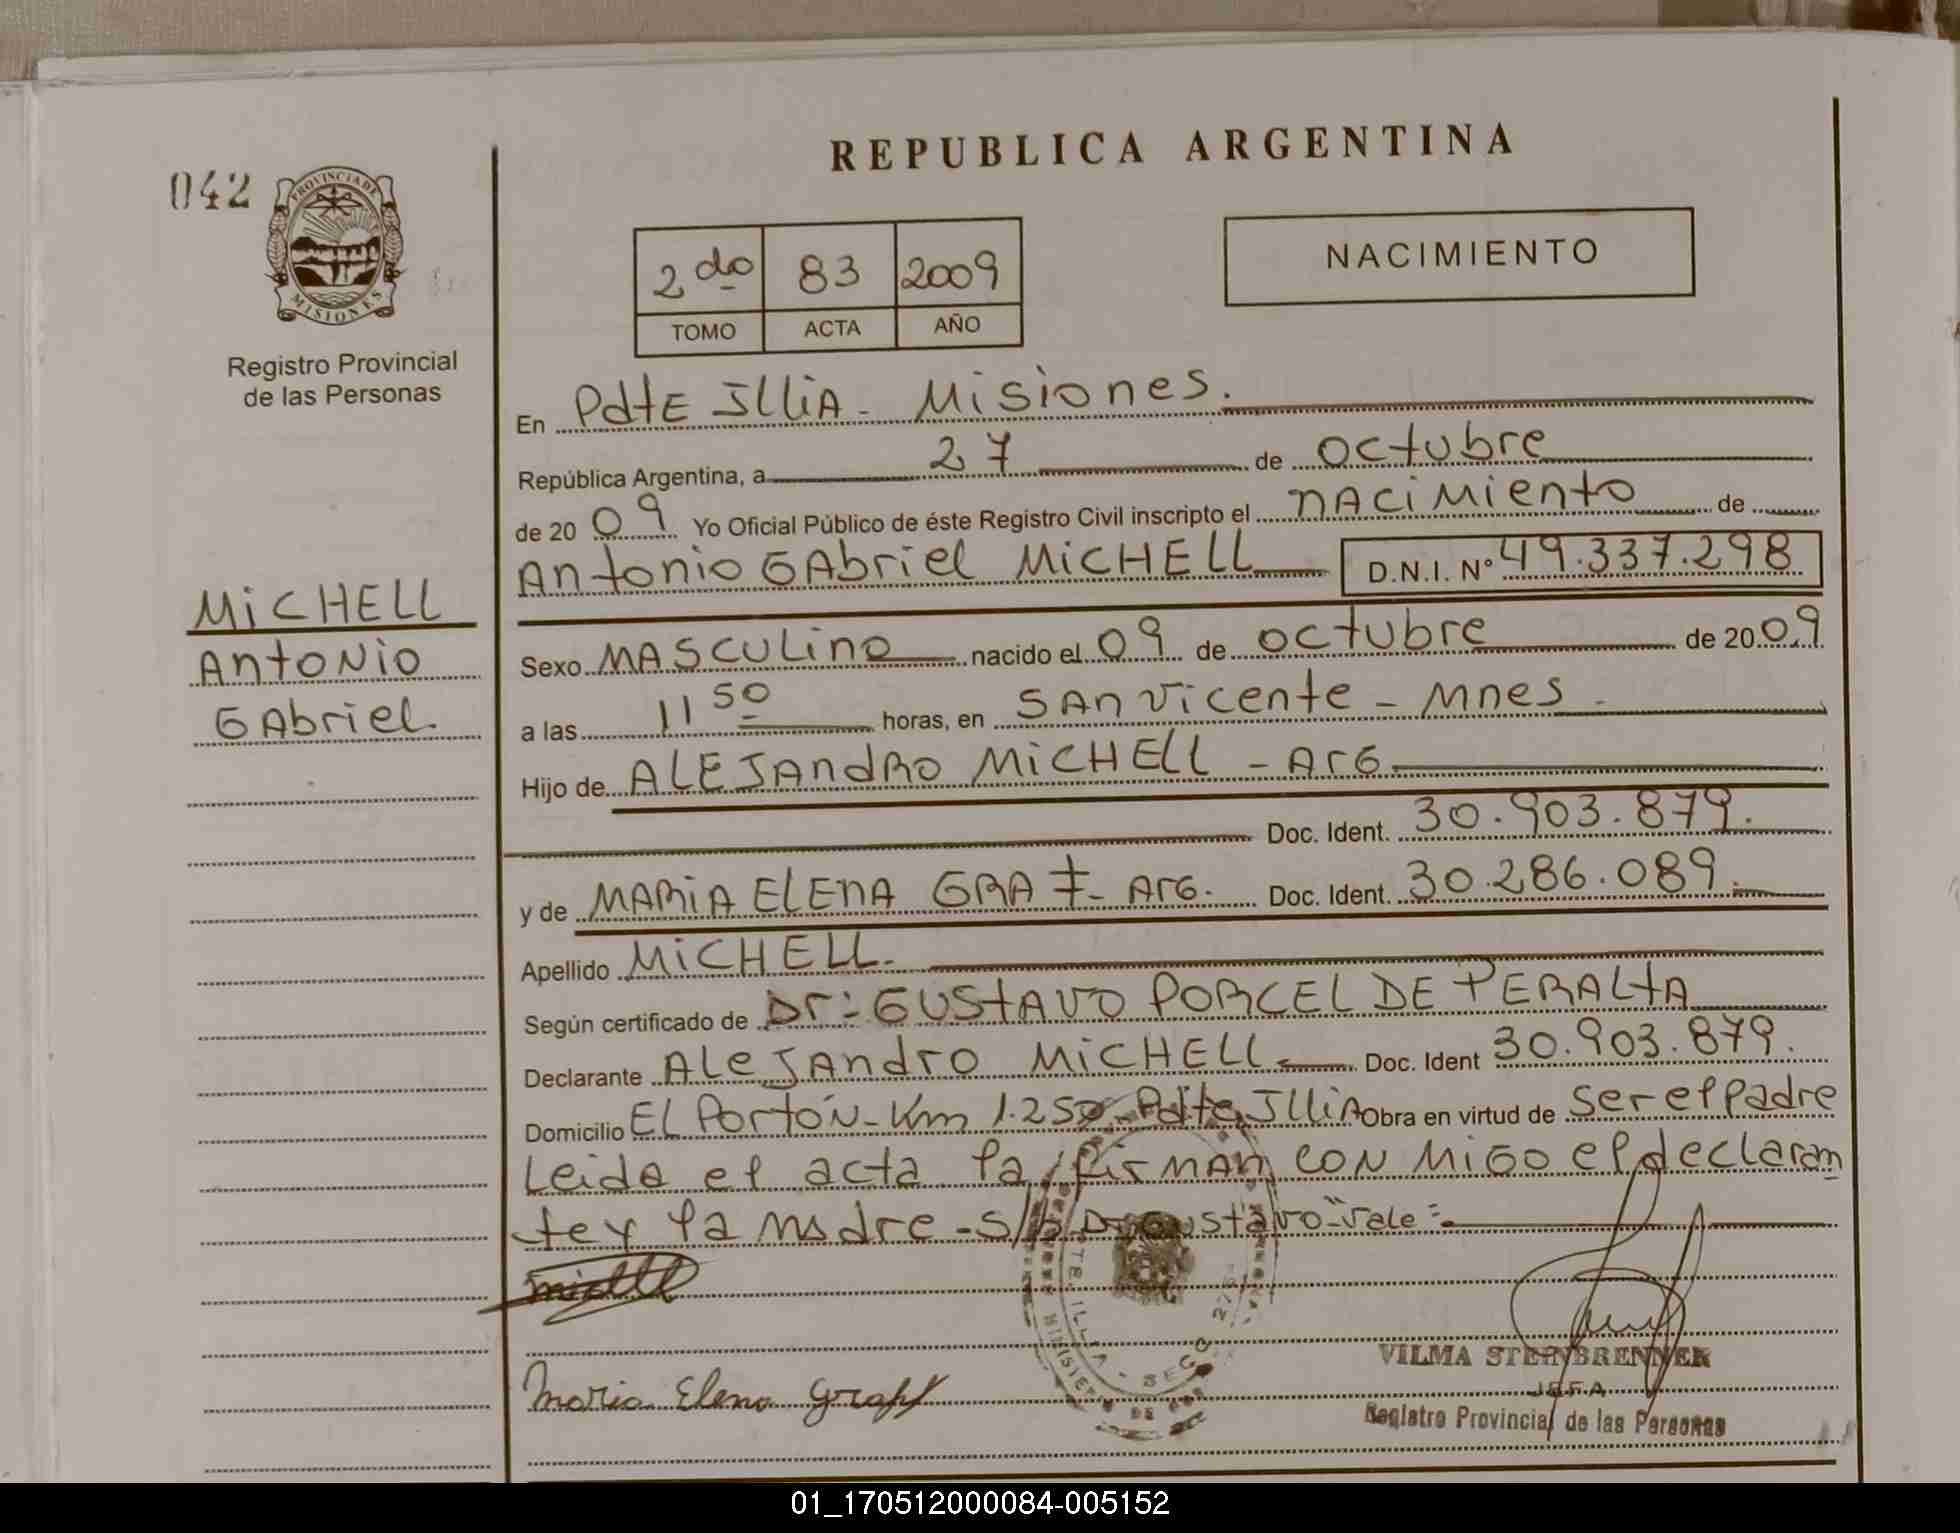 REPUBLICA ARGENTINA
042
PROVINCIA DE
MISIONES
Registro Provincial
de las Personas
2do 83 2009
TOMO ACTA AÑO
NACIMIENTO
MICHELL
Antonio
GAbriel.
En Pdte Illia - Misiones.
República Argentina, a 27 de octubre
de 2009 Yo Oficial Público de éste Registro Civil inscripto el nacimiento de
Antonio GAbriel MICHELL D.N.I. Nº 49.337.298
Sexo MASCULino nacido el 09 de octubre de 2009
a las 11 50 horas, en SAn Vicente - Mnes -
Hijo de ALEJAndRO MICHELL - Arg.
Doc. Ident. 30.903.879.
y de MARIA ELENA GRAF - Arg. Doc. Ident. 30.286.089.
Apellido MICHELL.
Según certificado de Dr: GUSTAVO PORCEL DE PERALTA
Declarante ALeJAndro MICHELL Doc. Ident 30.903.879.
Domicilio EL Portón - Km 1.250. Pdte Illia Obra en virtud de ser el padre
Leida el acta la firman con migo el declaran
te y la madre - s/b Dr Gustavo - "Vale" -
Maria Elena Graff
VILMA STEINBRENNER
JEFA
Registro Provincial de las Personas
01_170512000084-005152